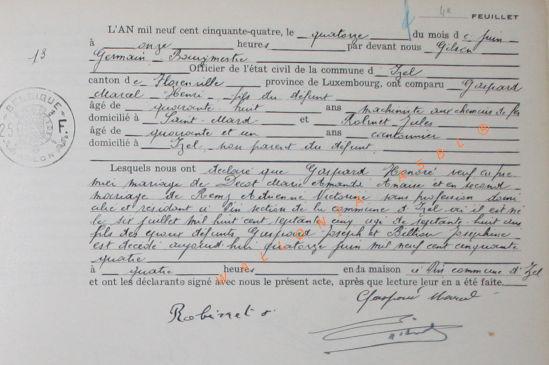 4e FEUILLET
13
L'AN mil neuf cent cinquante-quatre, le quatorze du mois de juin
à onze heures par devant nous Gilson
Germain Bourgmestre
Officier de l'état civil de la commune d'Izel
canton de Florenville province de Luxembourg, ont comparu Gaspard
Marcel Henri fils du défunt
âgé de quarante huit ans machiniste aux chemins de fer
domicilié à Saint-Mard et Robinet Jules
âgé de quarante et un ans cantonnier
domicilié à Izel, non parent du défunt
Lesquels nous ont déclaré que Gaspard Honoré veuf en pre
mier mariage de Marie Armande et en second
mariage de Remy Adrienne Victorine sans profession domi
cilié et résidant à Pin section de la commune d'Izel où il est né
le six juillet mil huit cent septante cinq, âgé de septante huit ans
fils des époux défunts Gaspard Joseph et Joséphine
est décédé aujourd'hui quatorze juin mil neuf cent cinquante
quatre
à quatre heures en da maison à Pin commune d'Izel
et ont les déclarants signé avec nous le présent acte, après que lecture leur en a été faite.
Gaspard Marcel
Robinet J.
WALLONIA ASBL ©